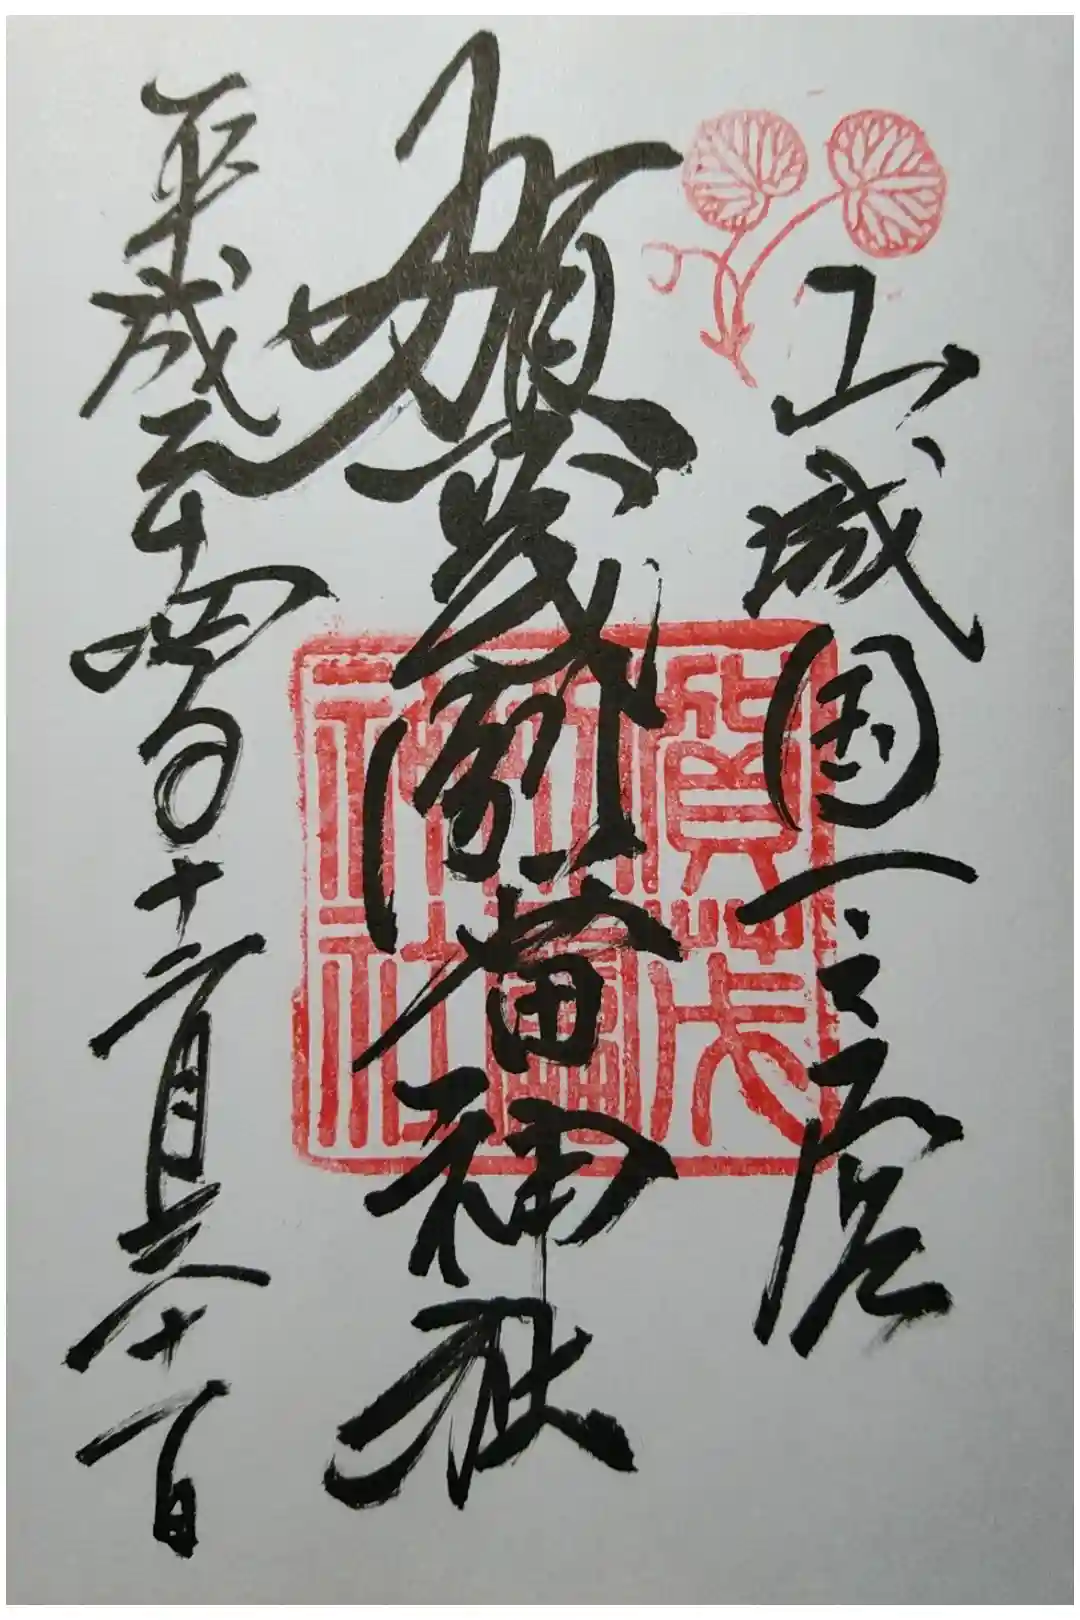 山城国一之宮
賀茂別雷神社
平成二十四年十二月三十一日
賀茂
別雷
神社